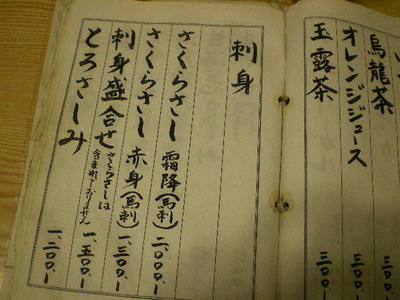 烏龍茶 三〇〇、ー
オレンジジュース 三〇〇、ー
玉露茶 三〇〇、ー
刺身
さくらさし 霜降(馬刺) 二、〇〇〇、ー
さくらさし 赤身(馬刺) 一、三〇〇、ー
刺身盛合せ さくらさしは 一、五〇〇、ー
含まれておりません
とろさしみ 一、二〇〇、ー